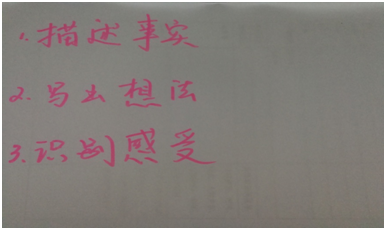 1.描述事实
2.写出想法
3.识别感受